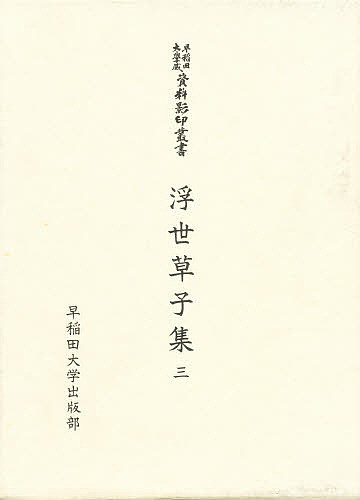 早稲田大學蔵資料影印叢書
浮世草子集 三
早稲田大学出版部